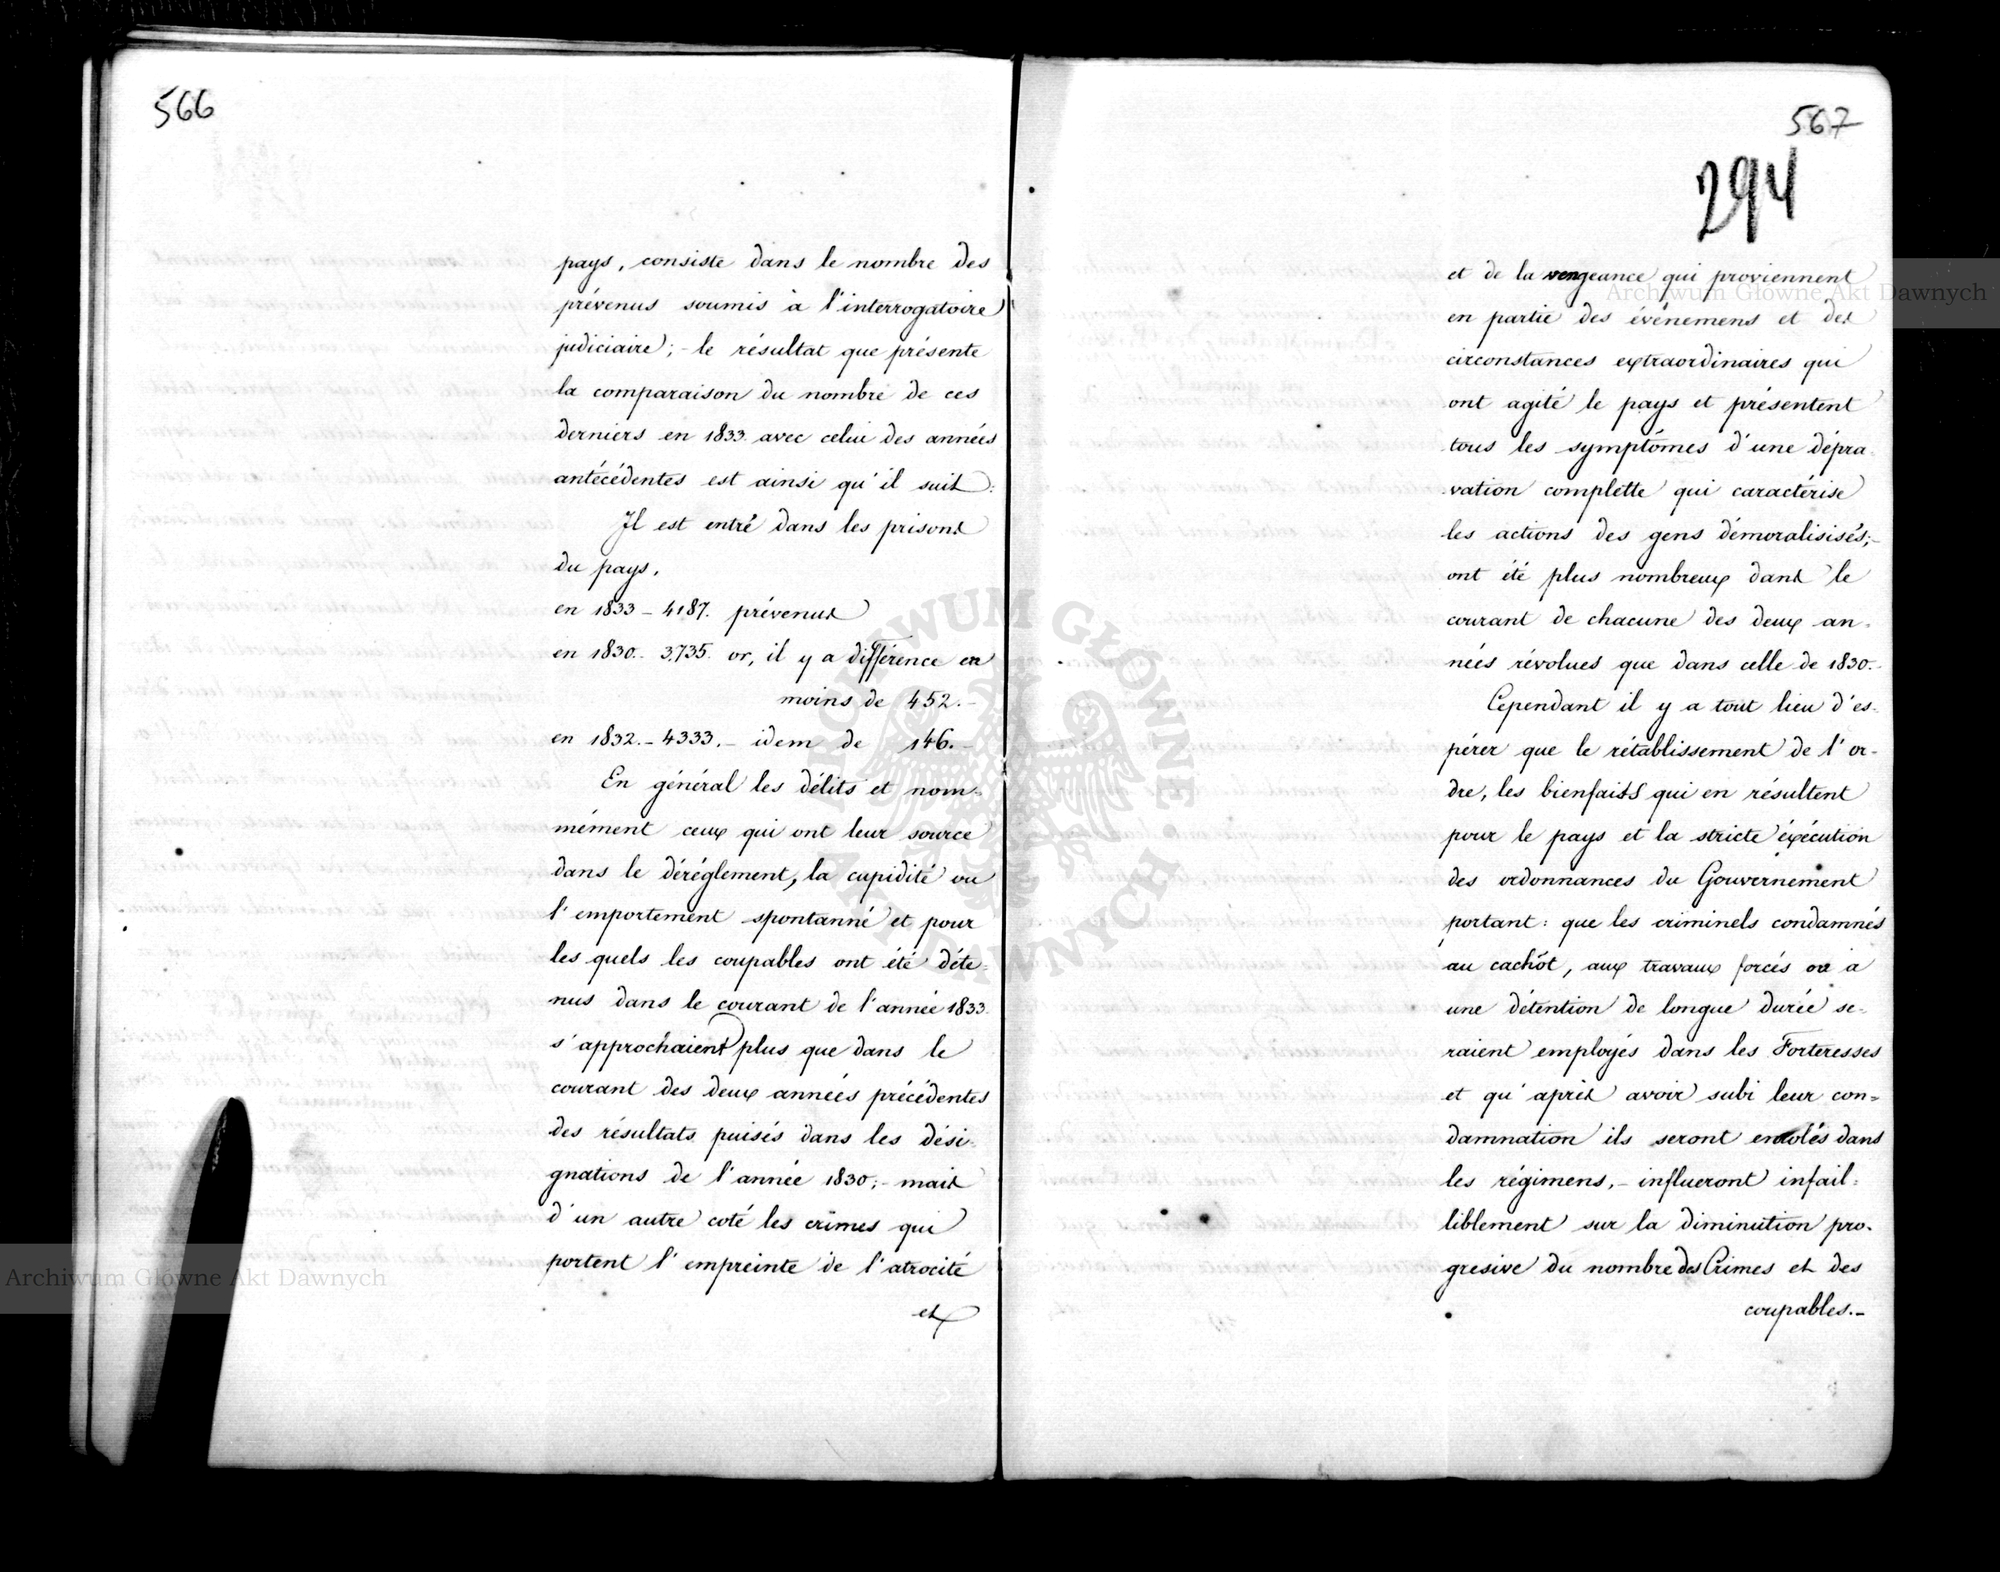 566
pays, consiste dans le nombre des
prévenus soumis à l'interrogatoire
judiciaire; - le résultat que présente
la comparaison du nombre de ces
derniers en 1833. avec celui des années
antécédentes est ainsi qu'il suit:
Il est entré dans les prisons
du pays,
en 1833 - 4187. prévenus
en 1830.. 3,735. or, il y a différence en
moins de 452.-
en 1832.- 4333.- idem de 146.-
En général les délits et nom-
mément ceux qui ont leur source
dans le déréglement, la cupidité ou
l'emportement spontanné et pour
les quels les coupables ont été déte-
nus dans le courant de l'année 1833.
s'approchaient plus que dans le
courant des deux années précédentes
des résultats puisés dans les dési-
gnations de l'année 1830; - mais
d'un autre coté les crimes qui
portent l'empreinte de l'atrocité
et
567
294
et de la vengeance qui proviennent
en partie des événemens et des
circonstances extraordinaires qui
ont agité le pays et présentent
tous les symptômes d'une dépra-
vation complette qui caractérise
les actions des gens démoralisisés; -
ont été plus nombreux dans le
courant de chacune des deux an-
nées révolues que dans celle de 1830.-
Cependant il y a tout lieu d'es-
pérer que le rétablissement de l'or-
dre, les bienfaits qui en résultent
pour le pays et la stricte éxécution
des ordonnances du Gouvernement
portant: que les criminels condamnés
au cachôt, aux travaux forcés ou à
une détention de longue durée se-
raient employés dans les Forteresses
et qu'après avoir subi leur con-
damnation ils seront enrolés dans
les régimens, - influeront infail-
liblement sur la diminution pro-
gresive du nombre des Crimes et des
coupables.-
Archiwum Główne Akt Dawnych
Archiwum Główne Akt Dawnych
ARCHIWUM GŁÓWNE · AKT DAWNYCH ·